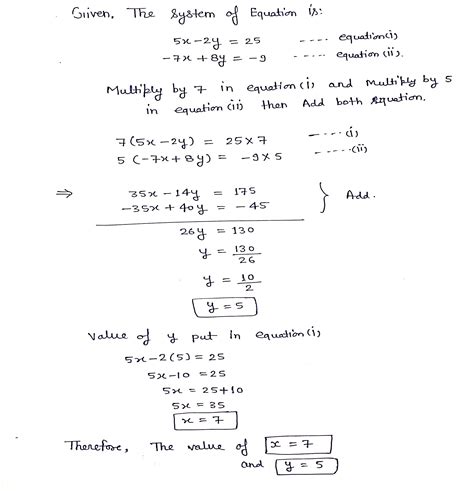 Given, The System of Equation is:
5x - 2y = 25 ---- equation(i)
-7x + 8y = -9 ---- equation (ii).
Multiply by 7 in equation (i) and Multiply by 5
in equation (ii) then Add both equation.
7(5x - 2y) = 25 × 7 ----- (i)
5(-7x + 8y) = -9 × 5 ----- (ii)
⇒ 35x - 14y = 175
-35x + 40y = -45 } Add.
26y = 130
y = 130/26
y = 10/2
y = 5
Value of y put in equation (i)
5x - 2(5) = 25
5x - 10 = 25
5x = 25 + 10
5x = 35
x = 7
Therefore, The value of x = 7
and y = 5